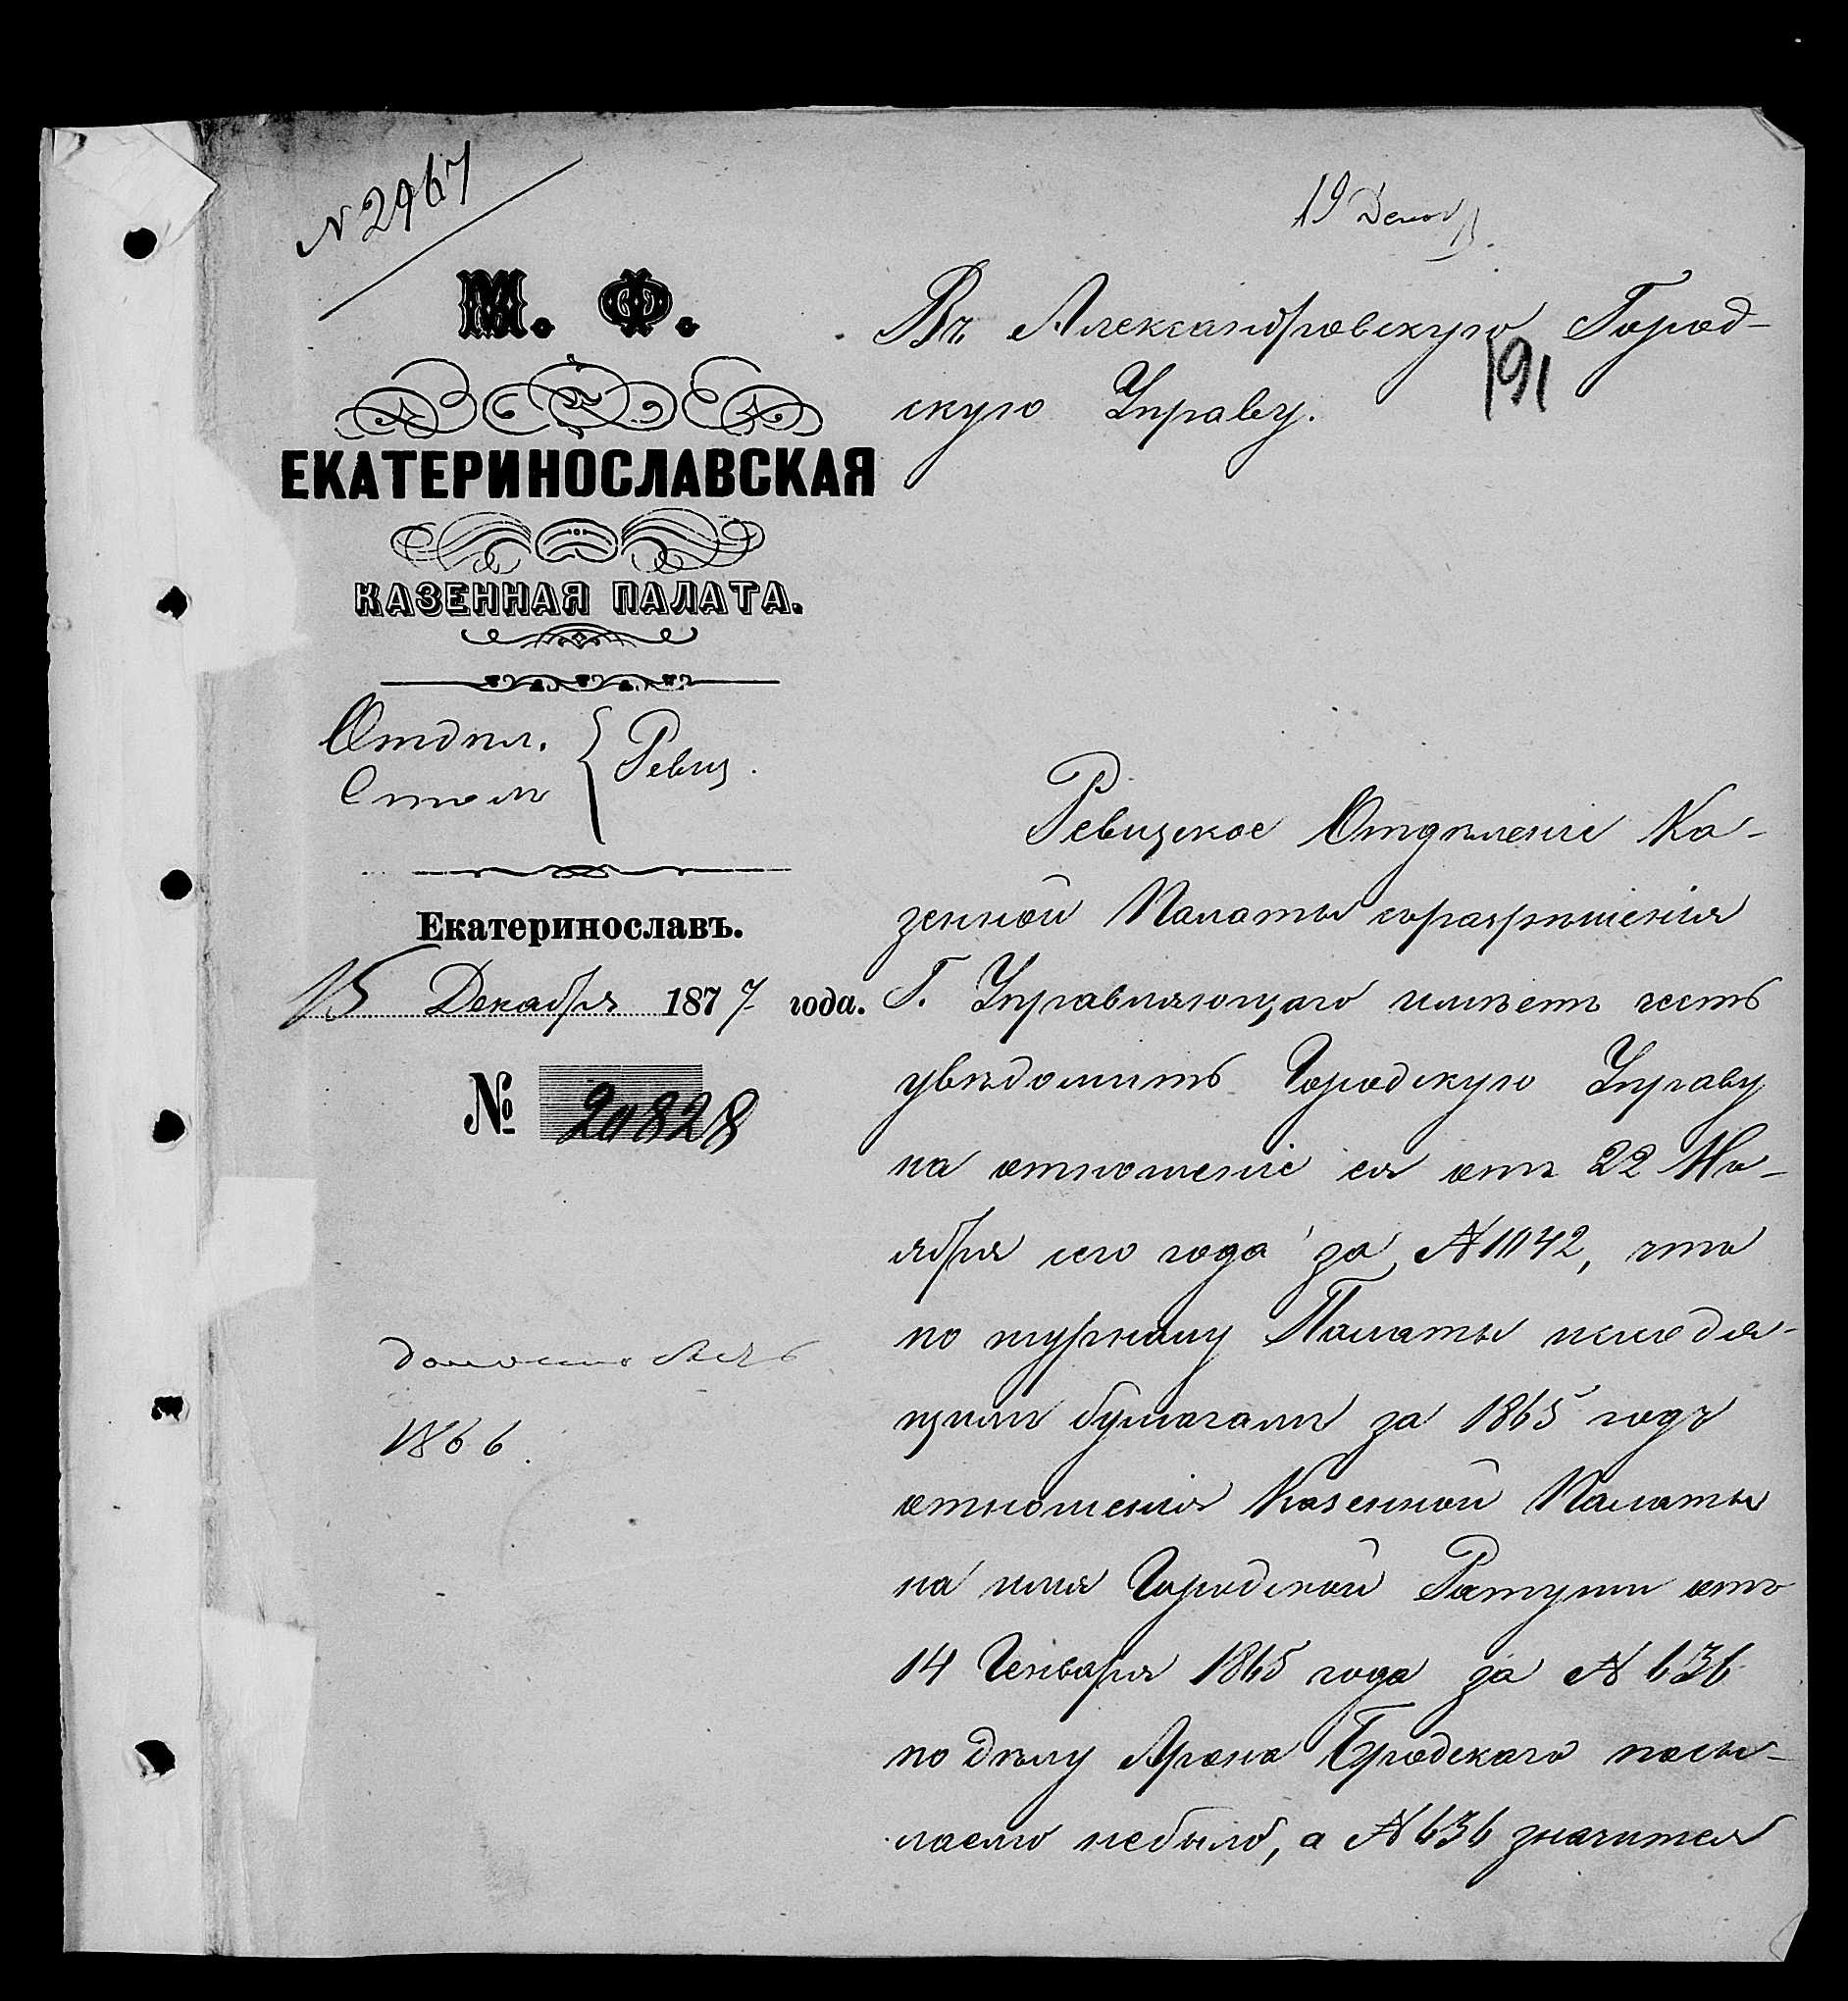 N 2967
19 Декаб.
М. Ф.
ЕКАТЕРИНОСЛАВСКАЯ
КАЗЕННАЯ ПАЛАТА.
Отдѣл.
Столъ
Ревиз.
Екатеринославъ.
15 Декабря 1877 года.
№ 20828
1866.
Въ Александровскую Город-
191
скую Управу.
Ревизское Отдѣленіе Ка-
зенной Палаты съразрѣшенія
Г. Управляющаго имѣетъ честь
увѣдомить Городскую Управу
на отношеніе ея отъ 22 Но-
ября сего года за № 1142, что
по журналу Палаты исходя-
щимъ бумагамъ за 1865 годъ
отношенія Казенной Палаты
на имя Городской Ратуши отъ
14 Генваря 1865 года за № 636
по дѣлу Арона Бродскаго посы-
лаемо небыло, а № 636 значится